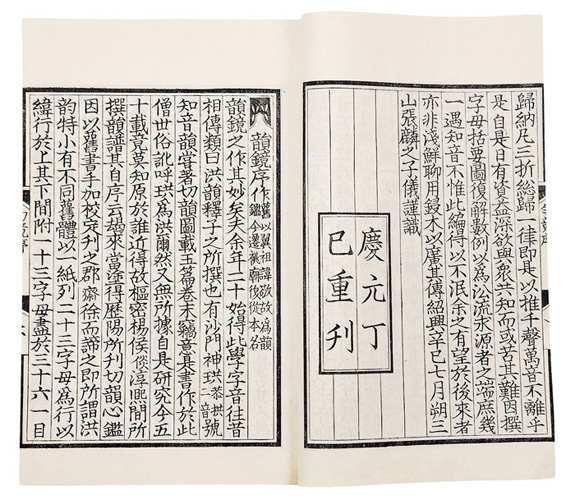 歸納凡三折総歸一律即是以推千聲萬音不離乎
是自是日有資益深欲與衆共知而或苦其難因撰
字母括要圖復解數例以為㳂流求源者之端庶幾
一遇知音不惟此編得以不泯余之有望於後來者
亦非淺鮮聊用鋟木以廣其傳紹興辛巳七月朔三
山張麟之子儀謹識
慶元丁
巳重刋
韻鏡序作舊以翼祖諱敬故為韻鑑今遷祧廟復從本名
韻鏡之作其妙矣夫余年二十始得此學字音往昔
相傳類曰洪韻釋子之所撰也有沙門神珙恭拱二音號
知音韻嘗著切韻圖載玉篇卷末竊意是書作於此
僧世俗訛呼珙為洪爾然又無所據自是研究今五
十載竟莫知原於誰近得故樞密楊侯倓淳熙間所
撰韻譜其自序云朅來當塗得歷陽所刋切韻心鑑
因以舊書手加校定刋之郡齋徐而諦之即所謂洪
韵特小有不同舊體以一紙列二十三字母為行以
緯行於上其下間附一十三字母盡於三十六一目